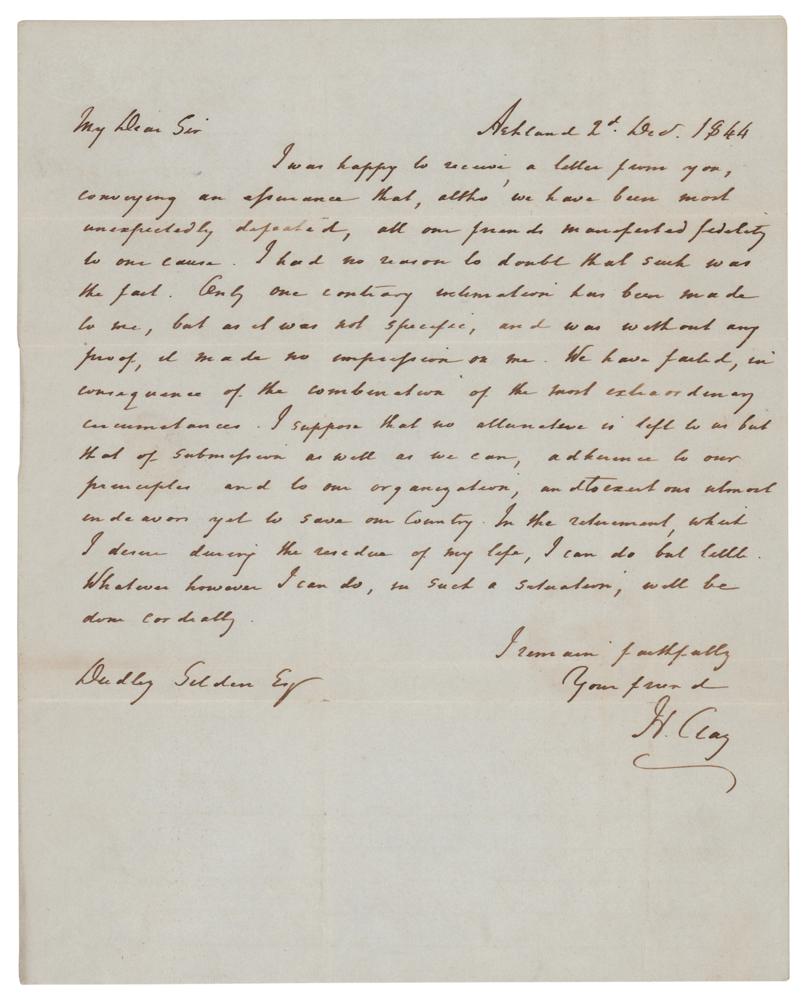 My Dear Sir Ashland 2d. Dec. 1844
I was happy to receive, a letter from you,
conveying an assurance that, altho' we have been most
unexpectedly defeated, all our friends manifested fidelity
to our cause. I had no reason to doubt that such was
the fact. Only one contrary intimation has been made
to me, but as it was not specific, and was without any
proof, it made no impression on me. We have failed, in
consequence of the combination of the most extraordinary
circumstances. I suppose that no alternative is left to us but
that of submission as well as we can, adherence to our
principles and to our organization, and to exert our utmost
endeavors yet to save our Country. In the retirement, which
I desire during the residue of my life, I can do but little.
Whatever however I can do, in such a situation, will be
done cordially.
I remain faithfully
Your friend
H. Clay
Dudley Selden Esq